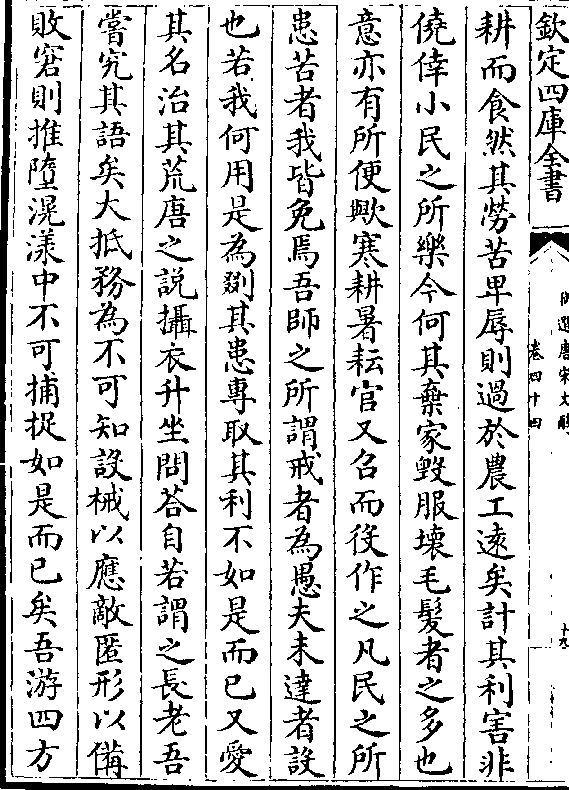 欽定四庫全書
御選唐宋文醇
卷四十四
十九
耕而食然其勞苦卑辱則過於農工逺矣計其利害非
僥倖小民之所樂今何其棄家毀服壊毛髮者之多也
意亦有所便歟寒耕暑耘官又召而役作之凡民之所
患苦者我皆免焉吾師之所謂戒者為愚夫未達者設
也若我何用是為剟其患專取其利不如是而已又愛
其名治其荒唐之説攝衣升坐問荅自若謂之長老吾
嘗究其語矣大抵務為不可知設械以應敵匿形以備
敗窘則推墮滉漾中不可捕捉如是而已矣吾游四方